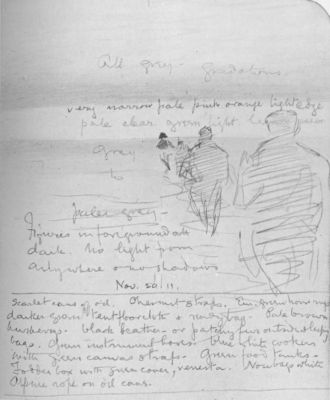 All grey. Gradations
very narrow pale pink orange light edge
pale clear green light
Grey
to
paler grey -
Figures in foreground all
dark. No light from
anywhere & no shadows
Nov. 20/11.
Scarlet cans of oil. Chestnut straps.
darker green tent floorcloth & ready bag. Pale brown
black leather
bags. Green instrument boxes. blue white cookers
with green canvas straps. Green food tanks.
Fodder box with green cover, venesta. Nosebags white
Alpine rope on oil cans.